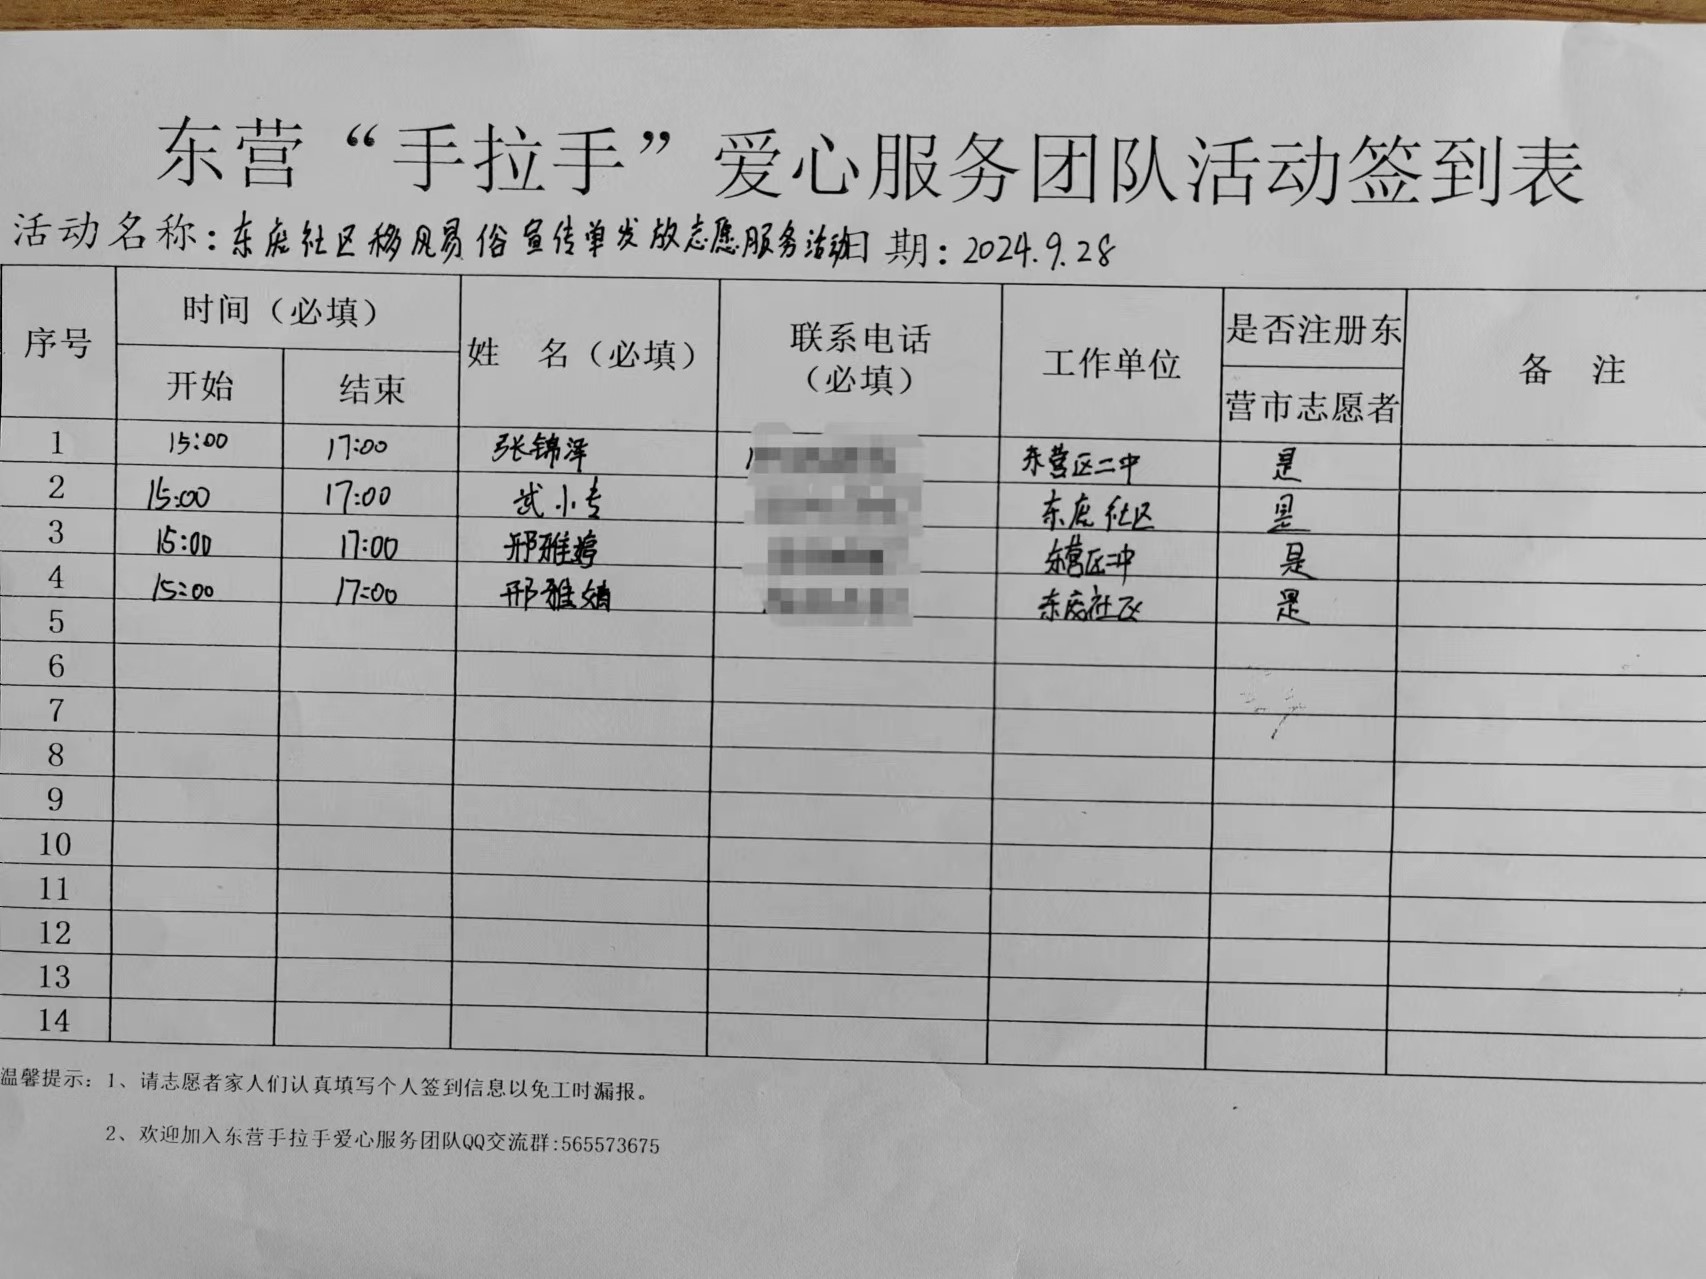 东营“手拉手”爱心服务团队活动签到表
活动名称：东虎社区移风易俗宣传单发放志愿服务活动 日期：2024.9.28
序号 时间（必填） 姓 名（必填） 联系电话（必填） 工作单位 是否注册东营市志愿者 备 注
开始 结束
1 15:00 17:00 张锦泽 东营区二中 是
2 15:00 17:00 武小专 东虎社区 是
3 15:00 17:00 邢雅婷 东营区二中 是
4 15:00 17:00 邢雅婧 东虎社区 是
5
6
7
8
9
10
11
12
13
14
温馨提示：1、请志愿者家人们认真填写个人签到信息以免工时漏报。
2、欢迎加入东营手拉手爱心服务团队QQ交流群:565573675